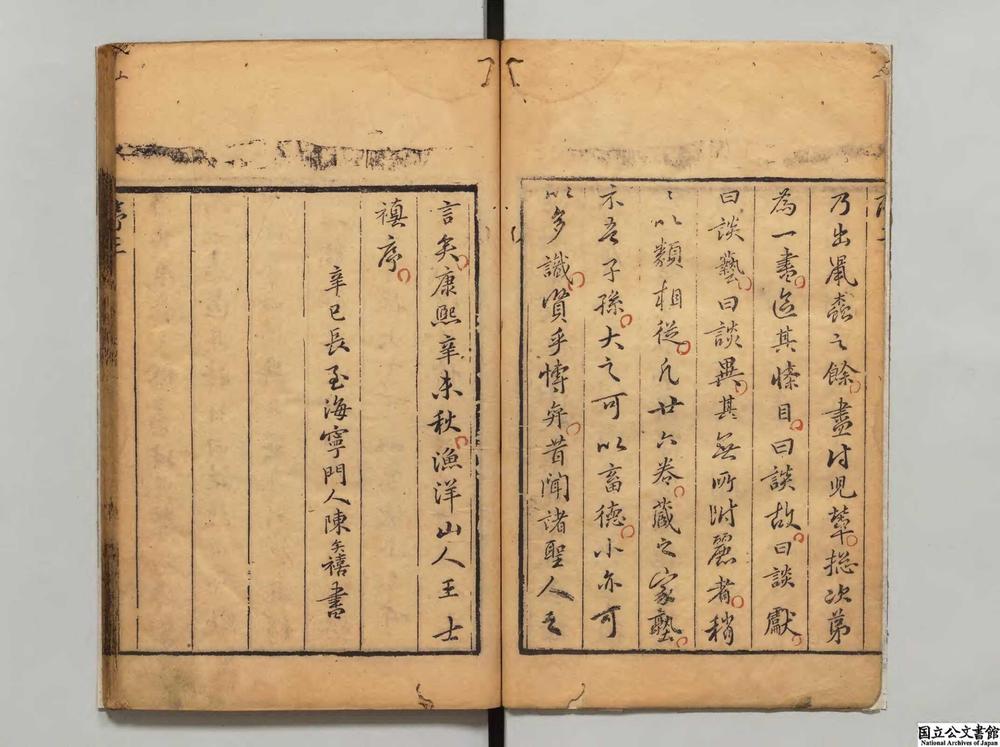 乃出鼠蠹之餘盡付兒輩総次第
為一書其條目曰談故曰談獻
曰談藝曰談異其無所附麗者稍
〻以類相從凡廿六卷藏之家塾
示吾子孫大之可以畜德小亦可
以多識賢乎博弈昔聞諸聖人之
言矣康熙辛未秋漁洋山人王士
禛序
辛巳長至海寧門人陳奕禧書
序三
国立公文書館
National Archives of Japan